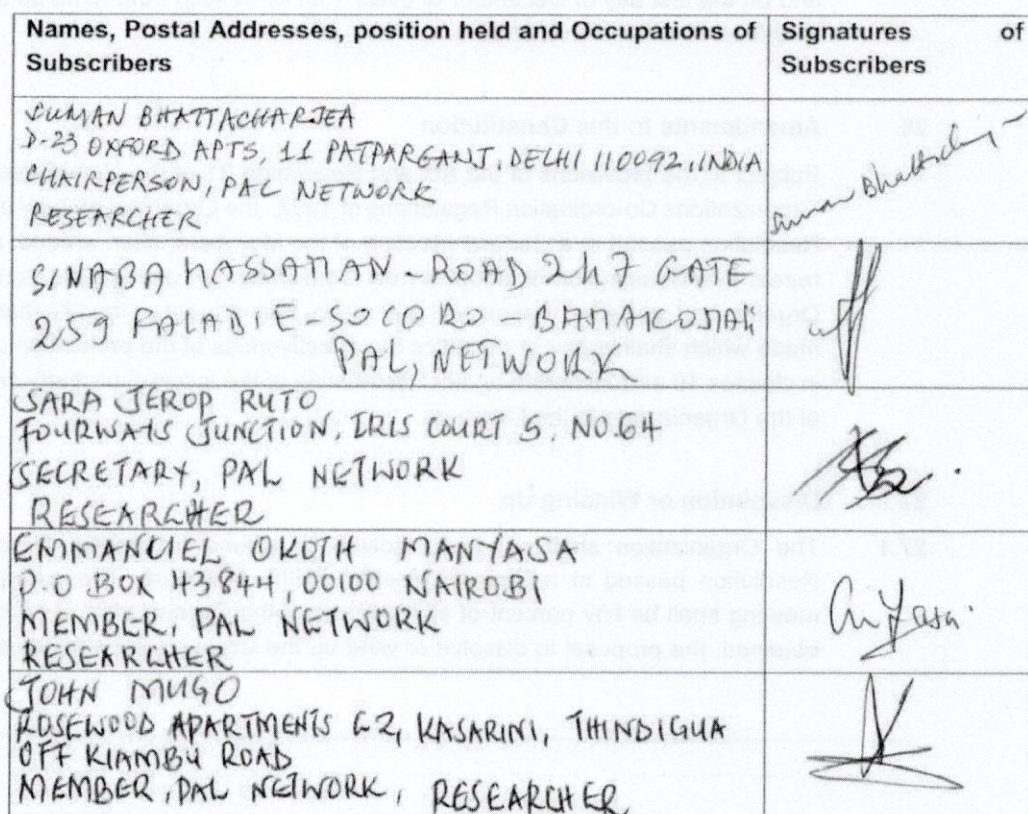 Names, Postal Addresses, position held and Occupations of Subscribers
Signatures of Subscribers
SUMAN BHATTACHARJEA
D-23 OXFORD APTS, 11 PATPARGANJ, DELHI 110092, INDIA
CHAIRPERSON, PAL NETWORK
RESEARCHER
Suman Bhattacharjea
SINABA MASSAMAN - ROAD 247 GATE
259 FALADIE-SOCORO - BAMAKO MALI
PAL, NETWORK
SARA JEROP RUTO
FOURWAYS JUNCTION, IRIS COURT 5, NO.64
SECRETARY, PAL NETWORK
RESEARCHER
EMMANUEL OKOTH MANYASA
P.O BOX 43844, 00100 NAIROBI
MEMBER, PAL NETWORK
RESEARCHER
JOHN MUGO
ROSEWOOD APARTMENTS G2, KASARINI, THINDIGUA
OFF KIAMBU ROAD
MEMBER, PAL NETWORK, RESEARCHER